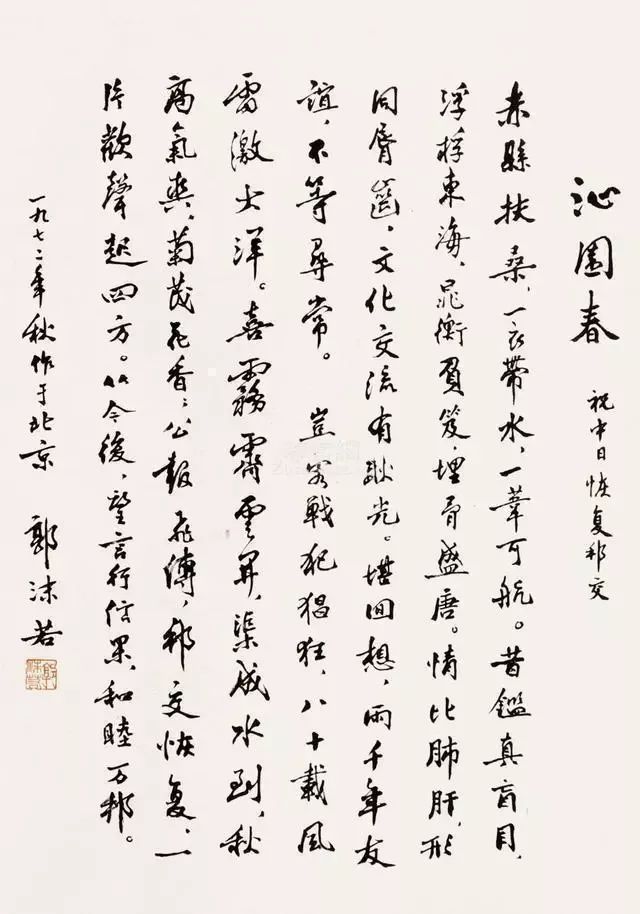 沁園春 祝中日恢复邦交
赤縣扶桑，一衣帶水，一葦可航。昔鑑真盲目，
浮桴東海，晁衡負笈，埋骨盛唐。情比肺肝，形
同唇齒，文化交流有耿光。堪回想，兩千年友
誼，不等尋常。 豈容戰犯猖狂，八十載風
雷激大洋。喜霧霽雲開，渠成水到，秋
高氣爽，菊茂花香；公報飛傳，邦交恢复，一
片歡聲起四方。從今後，望言行信果，和睦万邦。
一九七二年秋作于北京 郭沫若